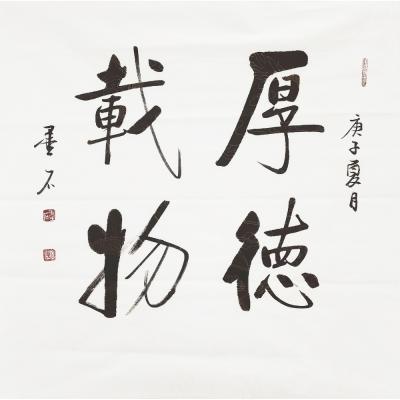 庚子夏月
厚德
載物
墨石